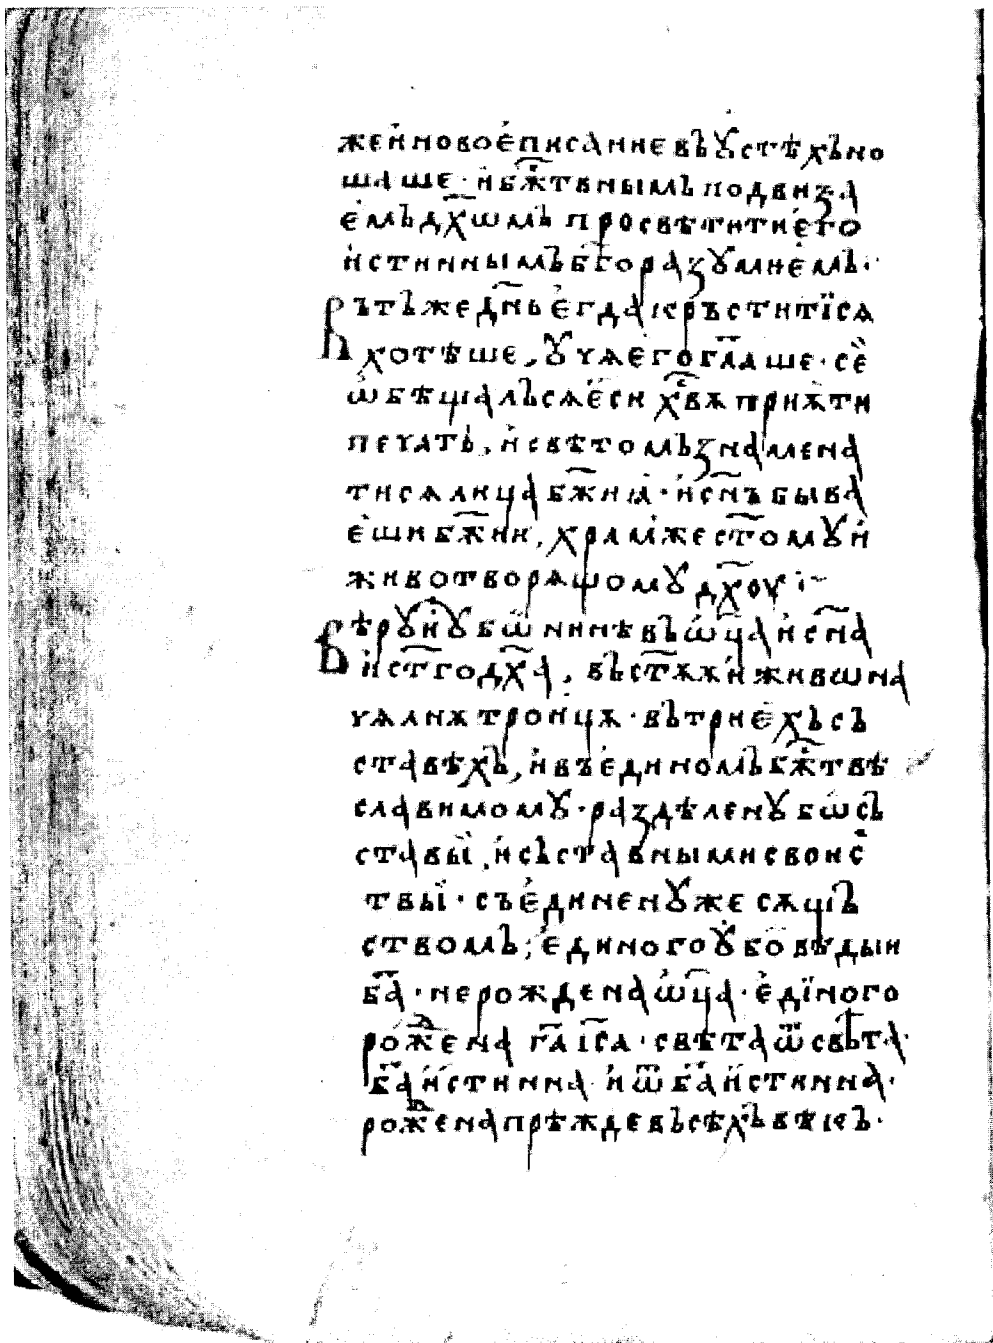 же и҆ новое҆ писание въ ꙋстѣхъ но
шаше · и҆ бж҃твнымь подвиꙁа
е҆мъ дх҃ѡмь просвѣтити е҆го
и҆стиннымъ б҃горазꙋмие҆мь ·
Въ тъже дн҃ь е҆гда кръститїсѧ
хотѣше , ꙋчѧ е҆го гл҃аше · се
ѡ҆бѣщалъсѧ е҆си хв҃ѫ приѫти
печать , и҆ свѣтомъ знамена
тисѧ лица бж҃ииа · и҆ сн҃ъ быва
е҆ши бж҃ии , храмже ст҃омꙋ и҆
животворѧщомꙋ дх҃оу :~
Вѣрꙋи ꙋбѡ нинѣ въ ѡ҆ц҃а и҆ сн҃а
и҆ ст҃го дх҃а , въ ст҃ѫѫ и҆ живѡна
чѧлнѫ троицѫ · въ трие҆хъ съ
ставѣхъ , и҆ въ е҆диномъ бж҃твѣ
славимомꙋ · раздѣленꙋ бѡ съ
ставы , и҆ съставными своис
твы · съе҆диненꙋ же сѫщъ
ствомъ ; е҆диного ꙋбо вѣдыи
б҃а · нерождена ѡ҆ц҃а · е҆дїного
рождена г҃а і҆с҃а · свѣта ѿ свѣта ·
б҃а и҆стинна и҆ ѿ б҃а и҆стинна ·
рождена прѣжде въсѣхъ вѣкъ ·